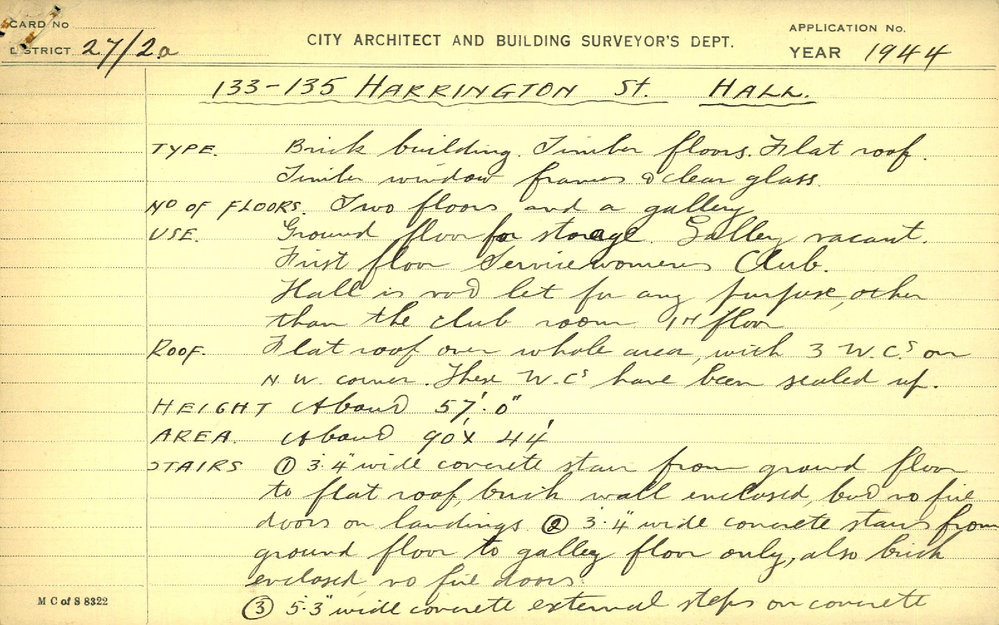 CARD No
DISTRICT 27/2a
CITY ARCHITECT AND BUILDING SURVEYOR'S DEPT.
APPLICATION No.
YEAR 1944
133-135 HARRINGTON St. HALL.
TYPE. Brick building. Timber floors. Flat roof.
Timber window frames & clear glass.
No OF FLOORS. Two floors and a gallery
USE. Ground floor for storage. Galley vacant.
First floor Servicewomens Club.
Hall is not let for any purpose, other
than the club room 1st floor
ROOF. Flat roof over whole area, with 3 W.C.s on
N.W. corner. These W.Cs have been sealed up.
HEIGHT About 57'.0"
AREA. About 90' x 44'
STAIRS ① 3'.4" wide concrete stair from ground floor
to flat roof, brick wall enclosed, but no fire
doors on landings ② 3'.4" wide concrete stairs from
ground floor to galley floor only, also brick
enclosed no fire doors
③ 5'.3" wide concrete external steps on concrete
M C of S 8322